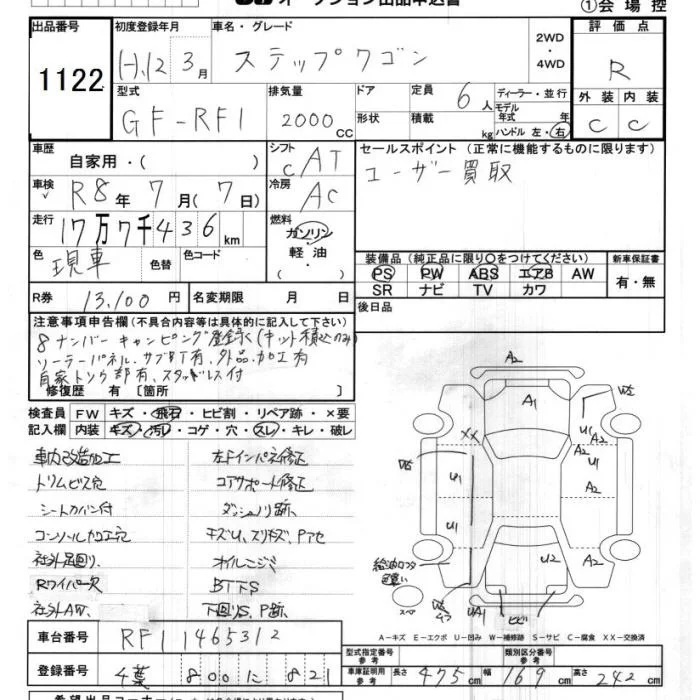 オークション出品申込書
①会場控
出品番号
1122
初度登録年月
H.12 3月
車名・グレード
ステップワゴン
2WD
・
4WD
評価点
R
外装 内装
C C
型式
GF-RF1
排気量
2000cc
ドア
形状
定員 6人
積載 kg
ディーラー・並行
モデル年式 年
ハンドル 左・右
車歴
自家用・( )
シフト
CAT
セールスポイント (正常に機能するものに限ります)
ユーザー買取
車検
R8年 7月(7日)
冷房
AC
走行
17万7千436km
燃料
ガソリン
軽油
・( )
色
現車
色替
色コード
装備品 (純正品に限り○をつけてください)
PS PW ABS エアB AW
SR ナビ TV カワ
新車保証書
有・無
R券 13,100円
名変期限 月 日
後日品
注意事項申告欄(不具合内容等は具体的に記入して下さい)
8ナンバー キャンピング登録(キット積込のみ)
ソーラーパネル、サブBT有、外品、加工有
自家トソウ部有、スタッドレス付
修復歴 有 [箇所 ]
検査員 FW キズ・飛石・ヒビ割・リペア跡・×要
記入欄 内装 キズ・汚レ・コゲ・穴・スレ・キレ・破レ
車内改造加工
トリムビス穴
シートカバー付
コンソール加工穴
社外足回り、
Rワイパー欠
社外AW、
左Fインパネ修正
コアサポート修正
ダッシュノリ跡、
キズU、スリキズ、Pアセ
オイルニジミ
BTTS
下回りS、P跡、
A2
A1
U2
XX
U1
A2
A2
U1
U2
U1
A2
U1
給油口フタ
色違い
U2
A2
スペア
UA1
ヒビ
A-キズ E-エクボ U-凹み W-補修跡 S-サビ C-腐食 XX-交換済
車台番号 RF1 1465312
登録番号 千葉 800 に 821
型式指定番号
参考
類別区分番号
参考
車庫証明用
参考
長さ 475cm 幅 169cm 高さ 242cm